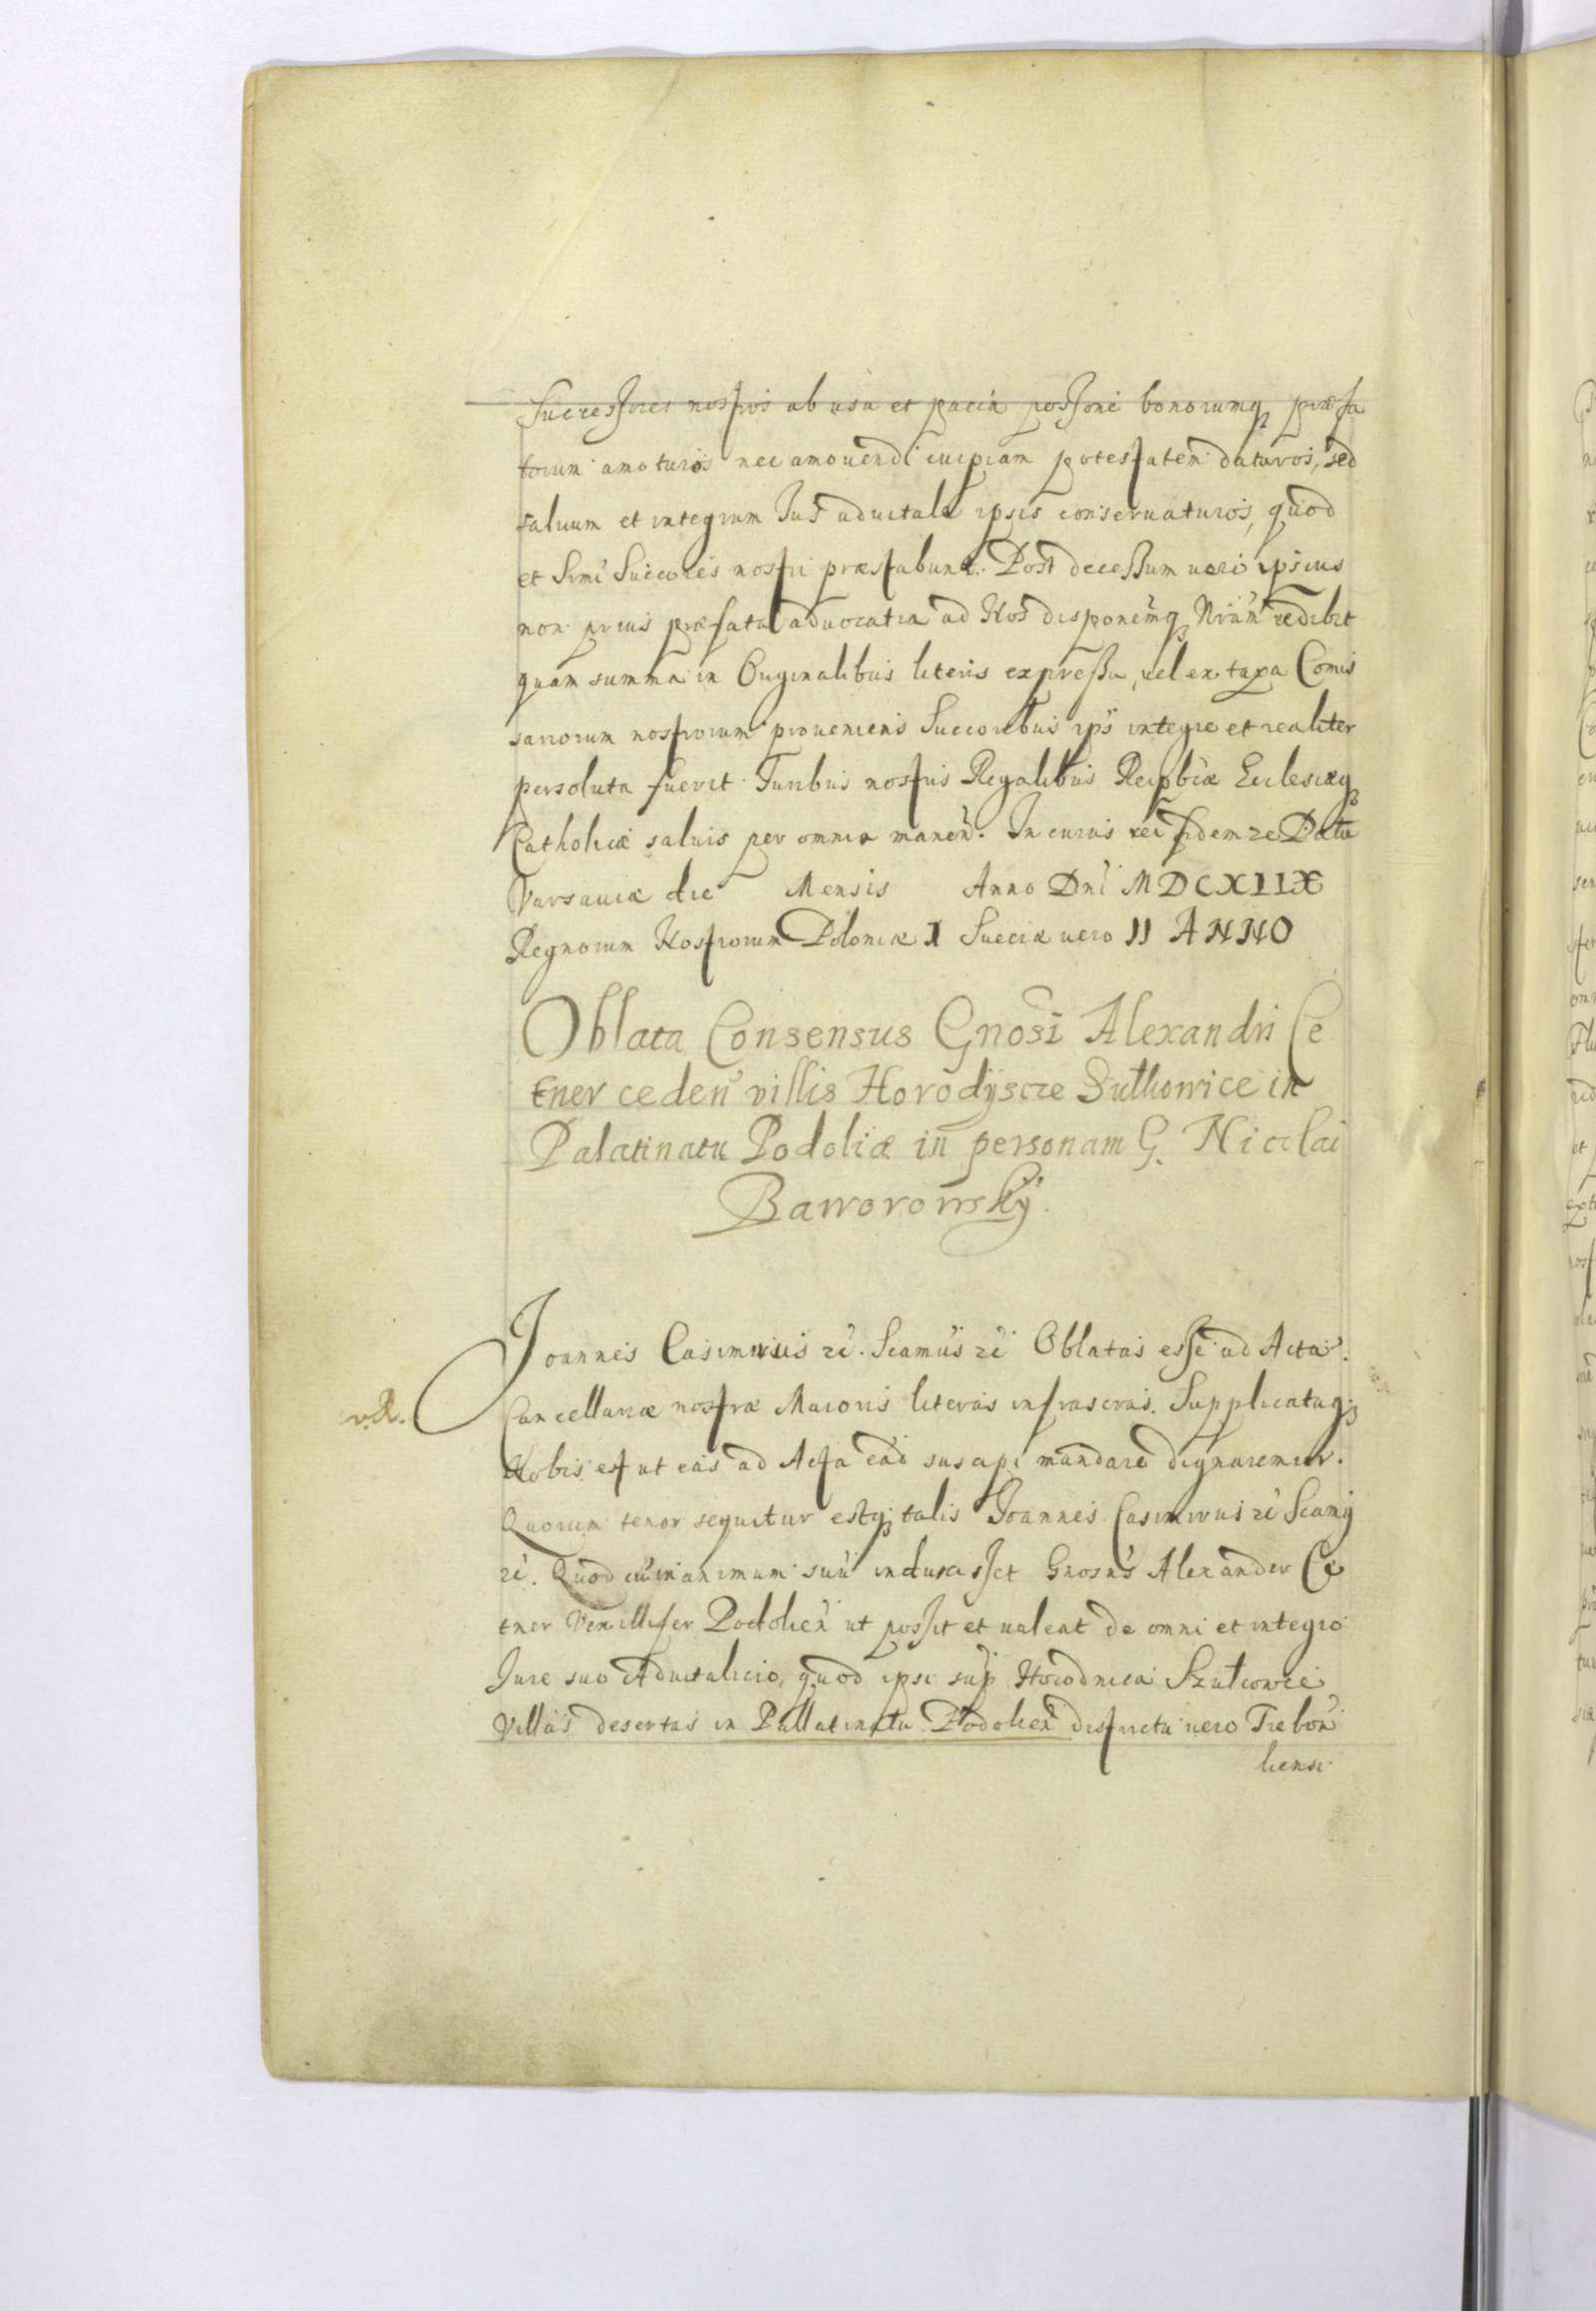 Successores nostros ab usu et pacifa possone bonorumq præfa
torum amoturos nec amouendi cuipiam potestatem daturos, sed
saluum et integrum Jus aduitale ipsis conseruaturos, quod
et Srmi Succores nostri præstabunt. Post decessum uero ipsius
non prius præfata aduocatia ad Nos disponemq Nram redibit
quam summa in Originalibus literis expressa, uel ex taxa Comis
sariorum nostrorum proueniens Succoribus ips integre et realiter
persoluta fuerit. Juribus nostris Regalibus Reipbcæ Ecclesiæq
Catholicæ saluis per omnia manen. In cuius rei fidem ze Datu
Varsauiæ die Mensis Anno Dni MDCXLIX
Regnorum Nostrorum Poloniæ I Sueciæ uero II ANNO
Oblata Consensus Gnosi Alexandri Ce
tner ceden villis Horodyscze Sulkowice in
Palatinatu Podoliæ in personam G. Nicolai
Baworowsky.
Joannes Casimirus ze. Scamus ze Oblatas esse ad Acta
Cancellariæ nostræ Maioris literas infrascras. Supplicatuq;
Nobis est ut eas ad Acta ead suscipi mandare dignaremur.
Quorum tenor sequitur estq; talis Joannes Casimirus ze Scamy
ze. Quod cu in animum suu induxisset Gnosus Alexander Ce
tner Vexillifer Podolien ut possit et ualeat de omni et integro
Jure suo Aduitalicio, quod ipsi sup Horodnica Szulcowce
Villas desertas in Pallatinatu Podolien districtu uero Trebon
liensi